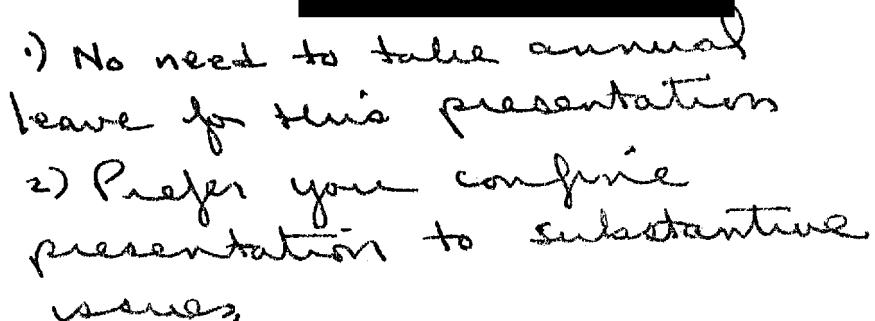 1) No need to take annual
leave for this presentation
2) Prefer you confine
presentation to substantive
issues